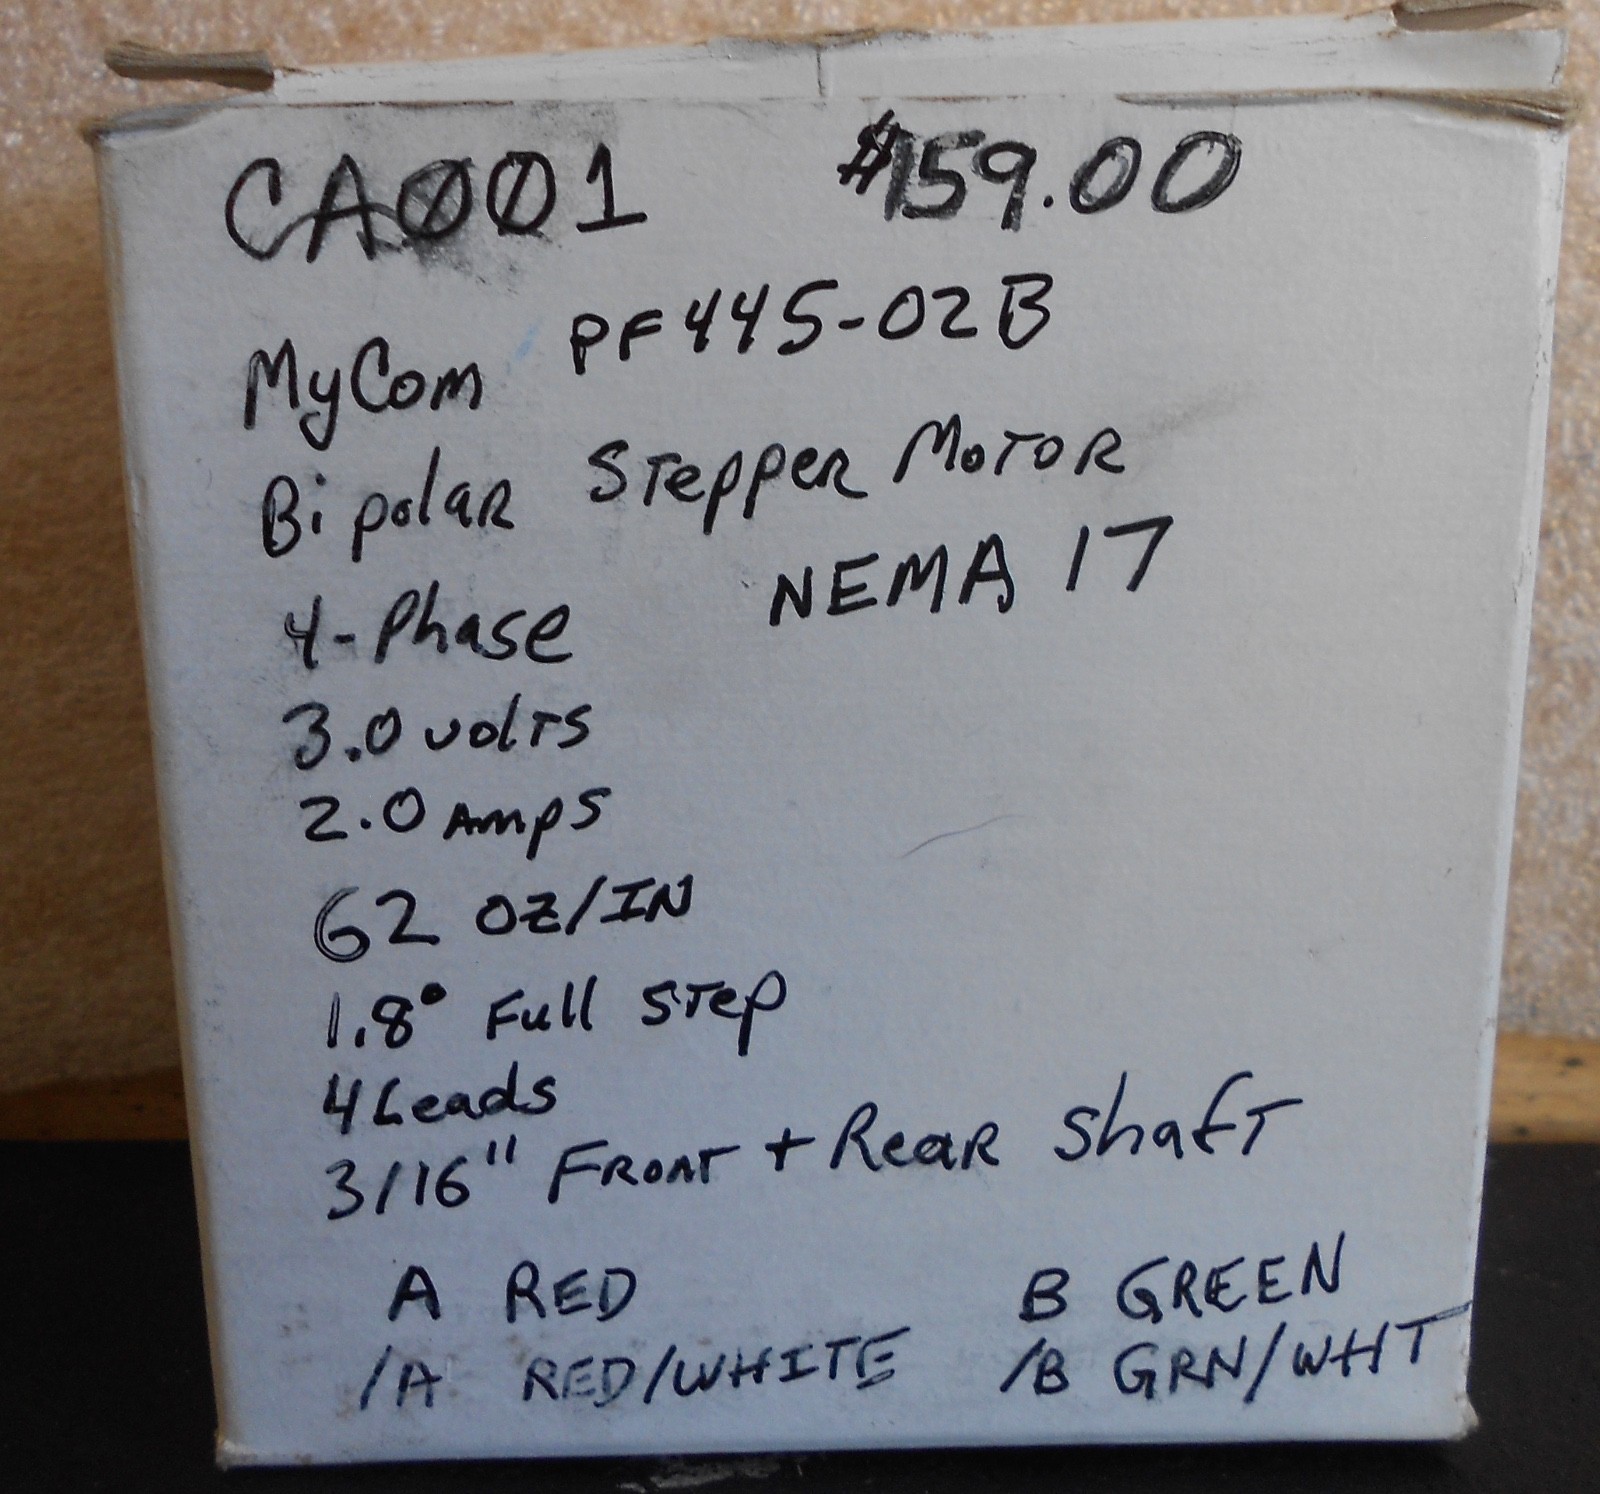 CA001 $159.00
MyCom PF445-02B
Bipolar Stepper Motor
4-Phase NEMA 17
3.0 volts
2.0 Amps
62 OZ/IN
1.8° Full Step
4 Leads
3/16" Front + Rear Shaft
A RED B GREEN
/A RED/WHITE /B GRN/WHT